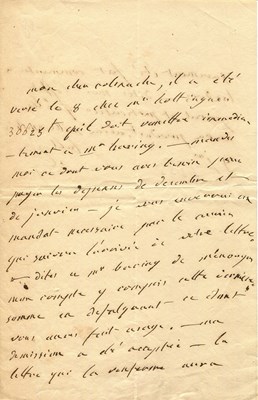 mon cher rolsnache, il a été
versé le 8 chez mr hottinguer
qu'il doit remettre immédia
-tement a mr baring. — mandez
moi ce dont vous avez besoin pour
payer les depenses de decembre et
de janvier — je vous enverrai un
mandat necessaire par le courier
qui suivra l'arrivée de votre lettre.
dites a mr baring de m'envoyer
mon compte y compris cette derniere
somme en defalquant ce dont
vous aurez fait usage. — ma
demission a été acceptée — la
lettre qui la renferme aura